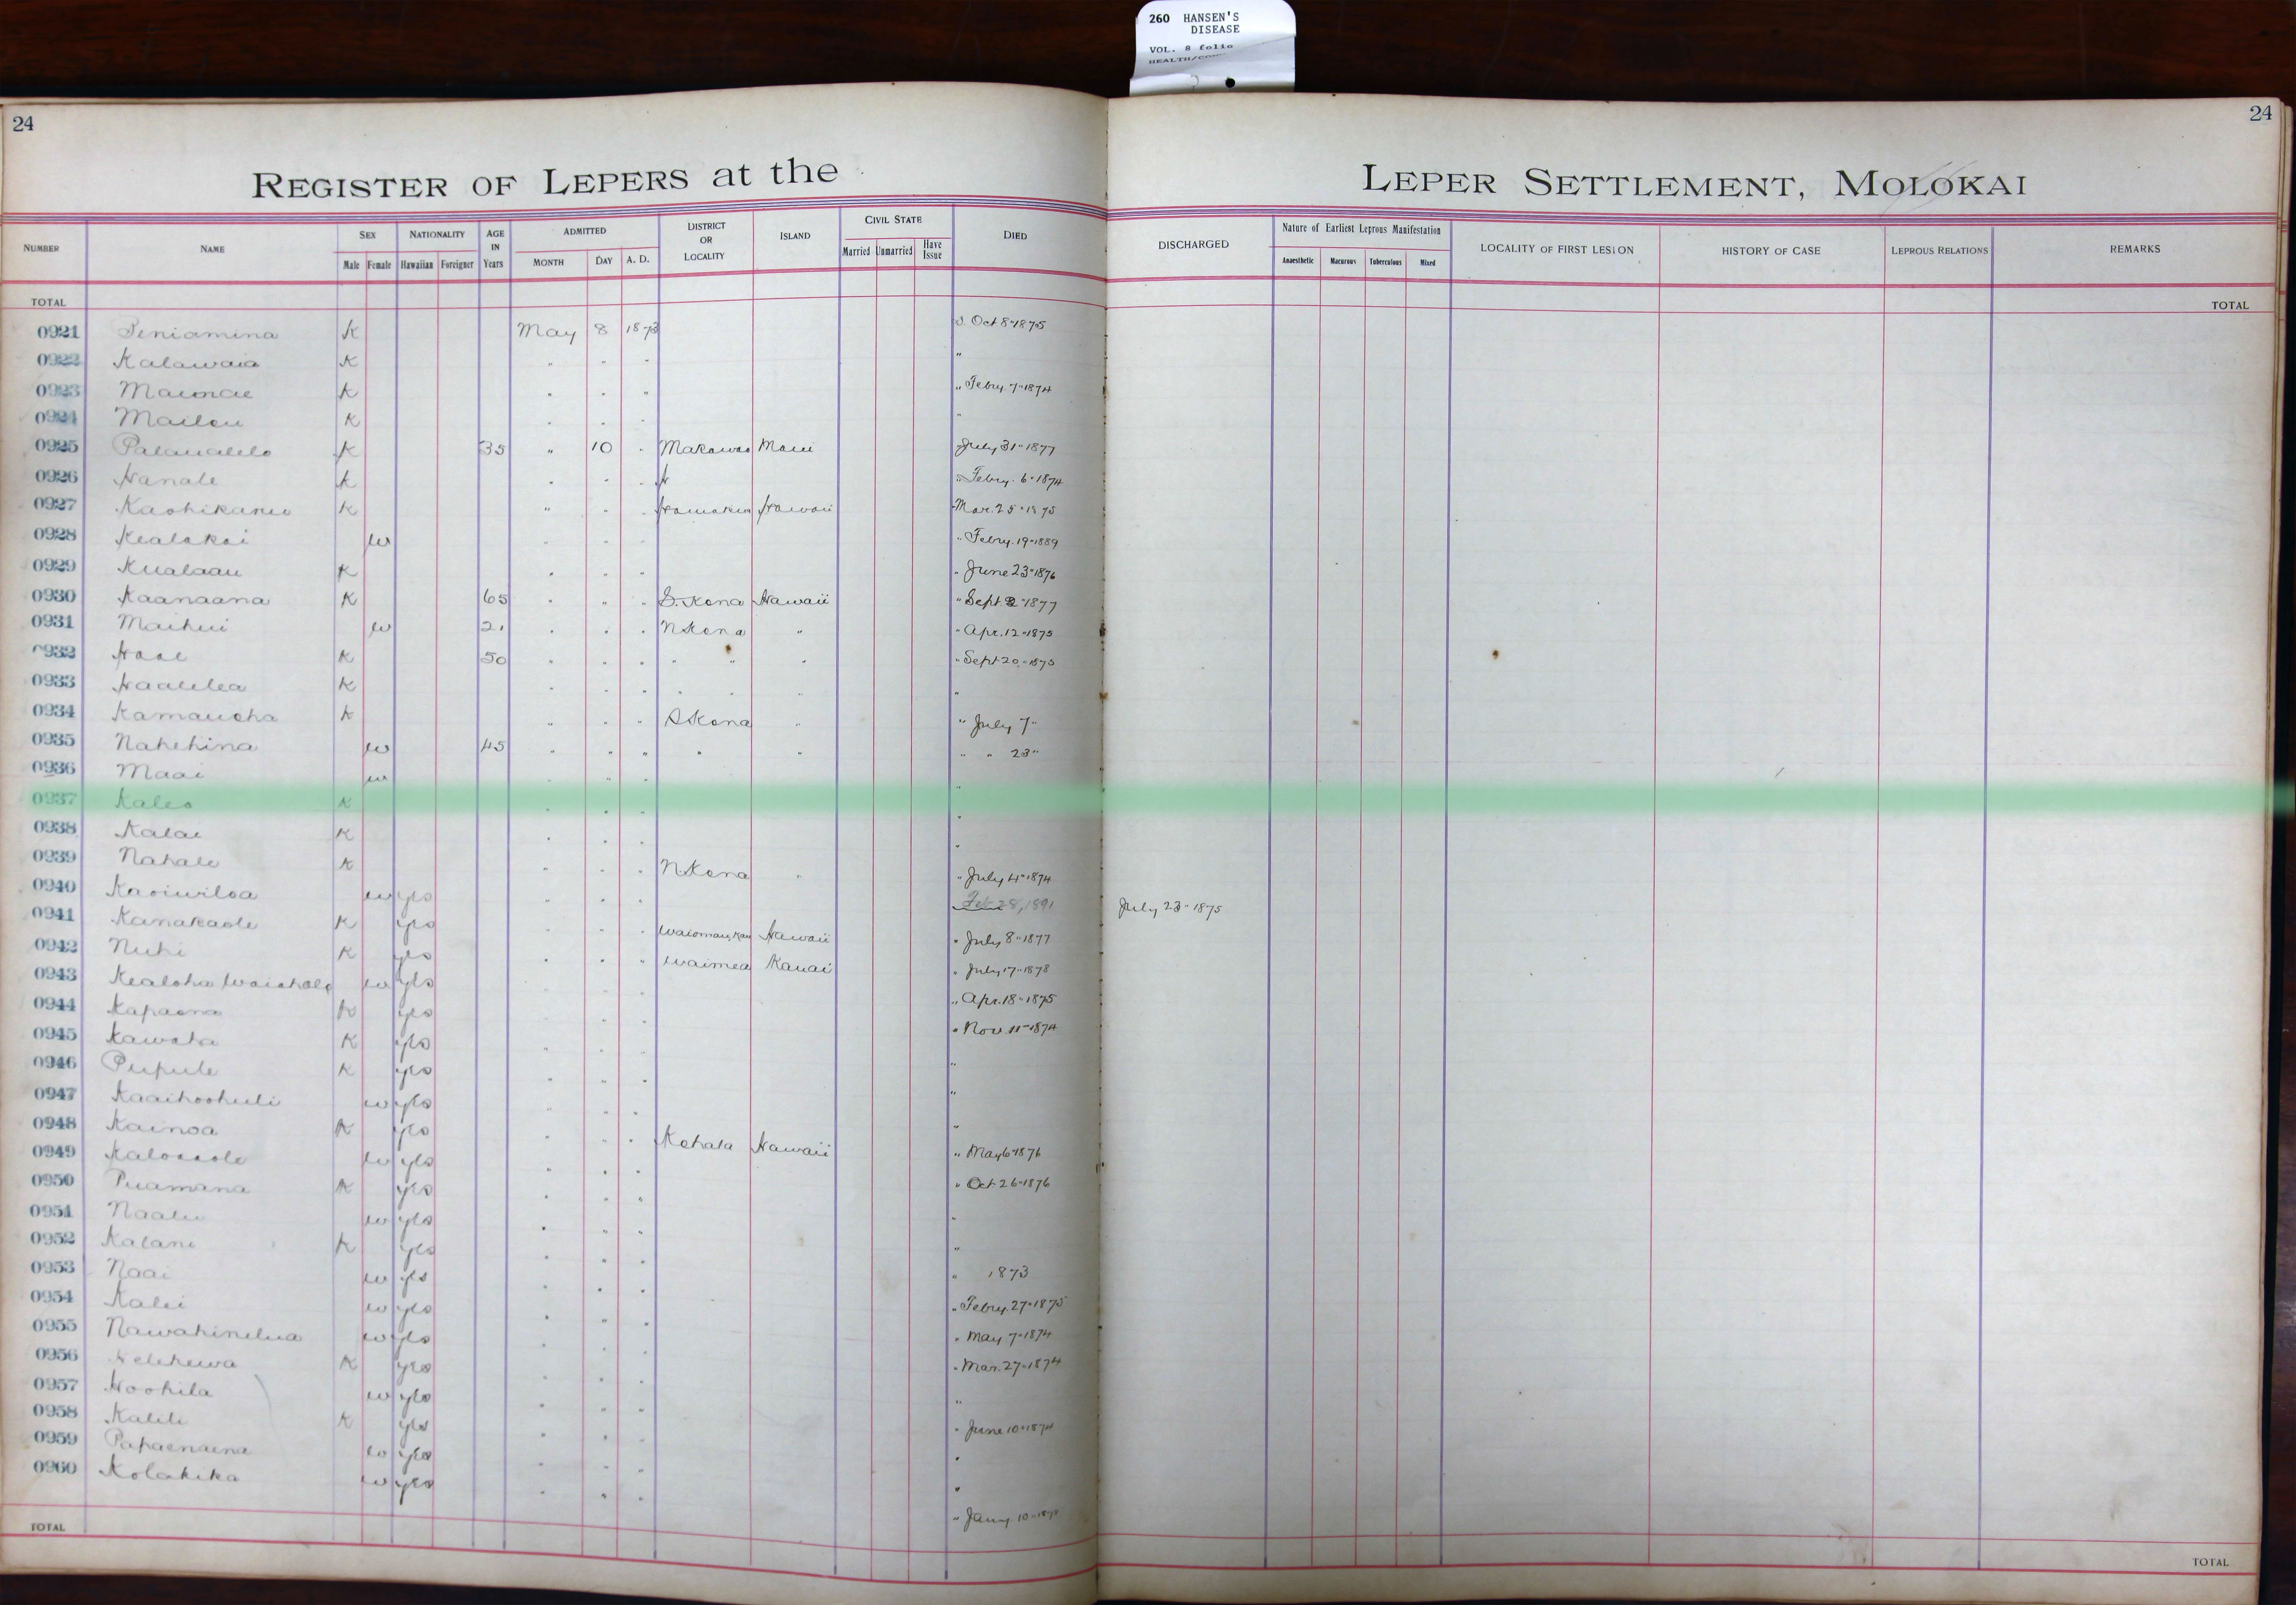 260 HANSEN'S
DISEASE
VOL. 8 folio
24
24
REGISTER OF LEPERS at the LEPER SETTLEMENT, MOLOKAI
NUMBER NAME SEX Male Female NATIONALITY Hawaiian Foreigner AGE IN Years ADMITTED MONTH DAY A. D. DISTRICT OR LOCALITY ISLAND CIVIL STATE Married Unmarried Have Issue DIED DISCHARGED Nature of Earliest Leprous Manifestation Anaesthetic Macurous Tuberculous Mixed LOCALITY OF FIRST LESION HISTORY OF CASE LEPROUS RELATIONS REMARKS
TOTAL TOTAL
0921 Peniamina K May 8 1873 Oct 8 " 1875
0922 Kalawaia K " " " "
0923 Maunae K " " " " Febry. 7 " 1874
0924 Mailou K " " " "
0925 Palaualelo K 35 " 10 " Makawao Maui July 31 " 1877
0926 Hanale K " " " " Febry. 6 " 1874
0927 K " " " Hamakua Hawaii Mar. 25 " 1875
0928 Kealakai w " " " " Febry. 19 " 1889
0929 Kualaau K " " " " June 23 " 1876
0930 Kaanaana K 65 " " " S. Kona Hawaii " Sept 2 " 1877
0931 Maihui w 21 " " " N Kona " " Apr. 12 " 1875
0932 Hoae K 50 " " " " " " " Sept 20 " 1875
0933 Haalelea K " " " " " " "
0934 Kamauoha K " " " S Kona " " July 7 "
0935 Nahehina w 45 " " " " " " " 23 "
0936 Maai w " " " "
0937 Kaleo K " " " "
0938 Kalai K " " " "
0939 Nahale K " " " N Kona " " July 4 " 1874
0940 Kaoiwiloa w yes " " " Feb 28, 1891 July 23 " 1875
0941 Kanakaole K yes " " " Hawaii " July 8 " 1877
0942 Nuhi K yes " " " Waimea Kauai " July 17 " 1878
0943 Kealoha w yes " " " " Apr. 18 " 1875
0944 Kapaona K yes " " " " Nov. 11 " 1874
0945 Kawaha K yes " " " "
0946 Pupule K yes " " " "
0947 Kaaihoohuli w yes " " " "
0948 Kainoa K yes " " " Kohala Hawaii " May 6 " 1876
0949 w yes " " " " Oct 26 " 1876
0950 Puamana K yes " " " "
0951 Naalu w yes " " " "
0952 Kalani K yes " " " " 1873
0953 Naai w yes " " " " Febry. 27 " 1875
0954 Kalei w yes " " " " May 7 " 1874
0955 Nawahinelua w yes " " " " Mar. 27 " 1874
0956 Kelehewa K yes " " " "
0957 Hoohila w yes " " " " June 10 " 1874
0958 Kalili K yes " " " "
0959 Papaenaena w yes " " " "
0960 Kolakika w yes " " " " Jany. 10 "
TOTAL TOTAL